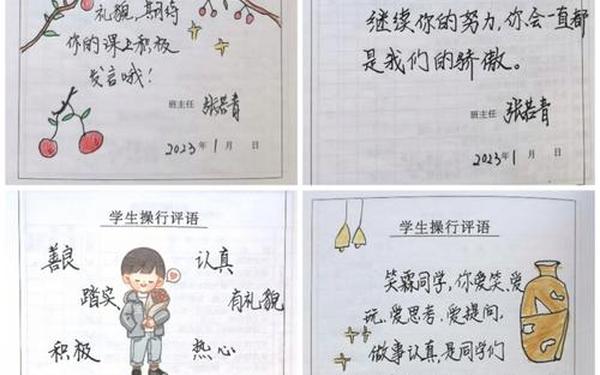 礼貌,期待
你的课上积极
发言哦!
班主任 张若青
2023年1月 日
继续你的努力,你会一直都
是我们的骄傲。
班主任 张若青
2023年1月 日
学生操行评语
善良 认真
踏实 有礼貌
积极 热心
学生操行评语
笑霖同学,你爱笑、爱
玩、爱思考、爱提问,
做事认真,是同学们